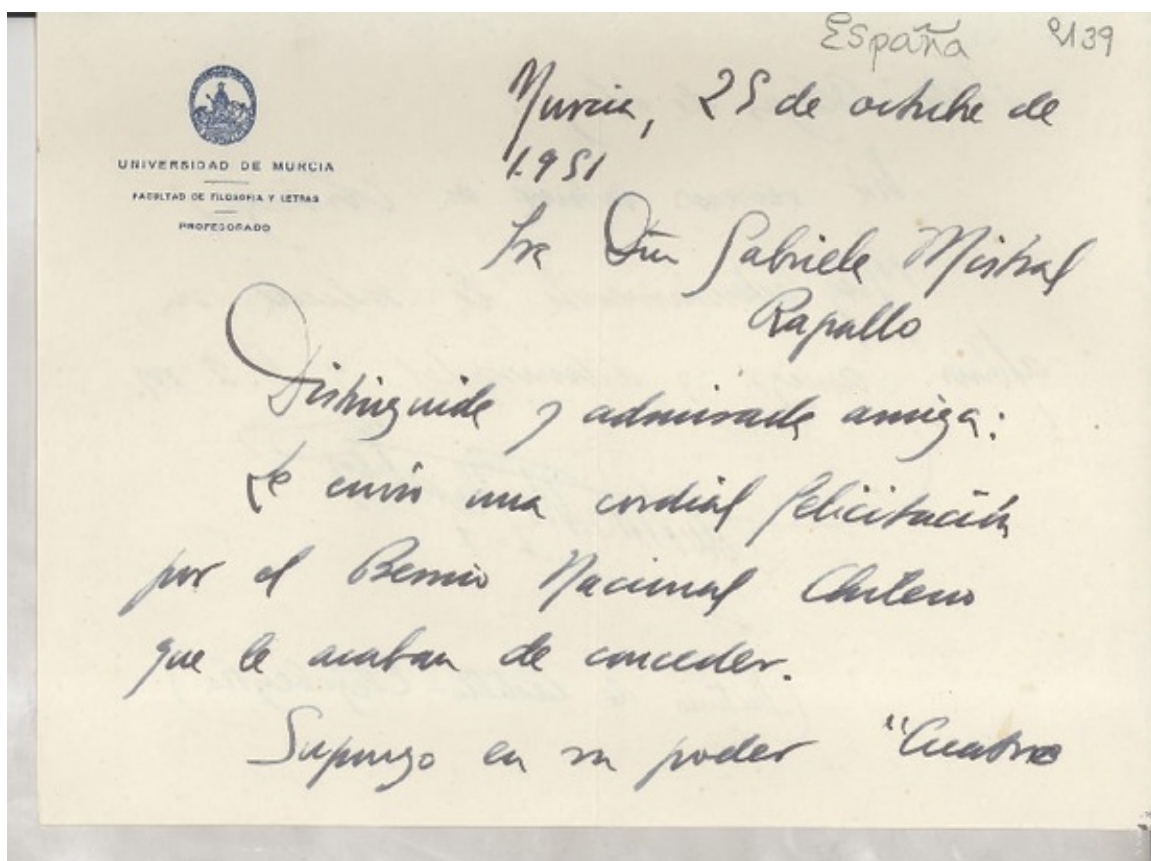 España 2139
Murcia, 25 de octubre de
1.951
UNIVERSIDAD DE MURCIA
FACULTAD DE FILOSOFIA Y LETRAS
PROFESORADO
Sra Dña Gabriela Mistral
Rapallo
Distinguida y admirada amiga:
Le envío una cordial felicitación
por el Premio Nacional Chileno
que le acaban de conceder.
Supongo en su poder "Cuatro